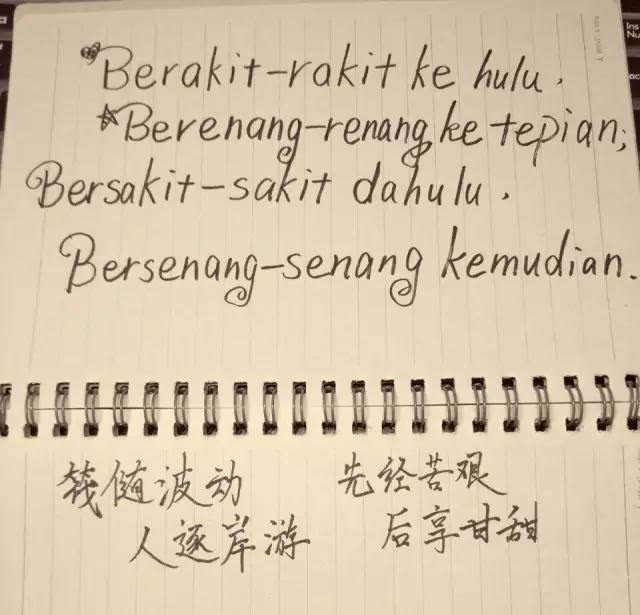 Berakit-rakit ke hulu,
Berenang-renang ke tepian;
Bersakit-sakit dahulu,
Bersenang-senang kemudian.
筏随波动
人逐岸游
先经苦艰
后享甘甜
Ins